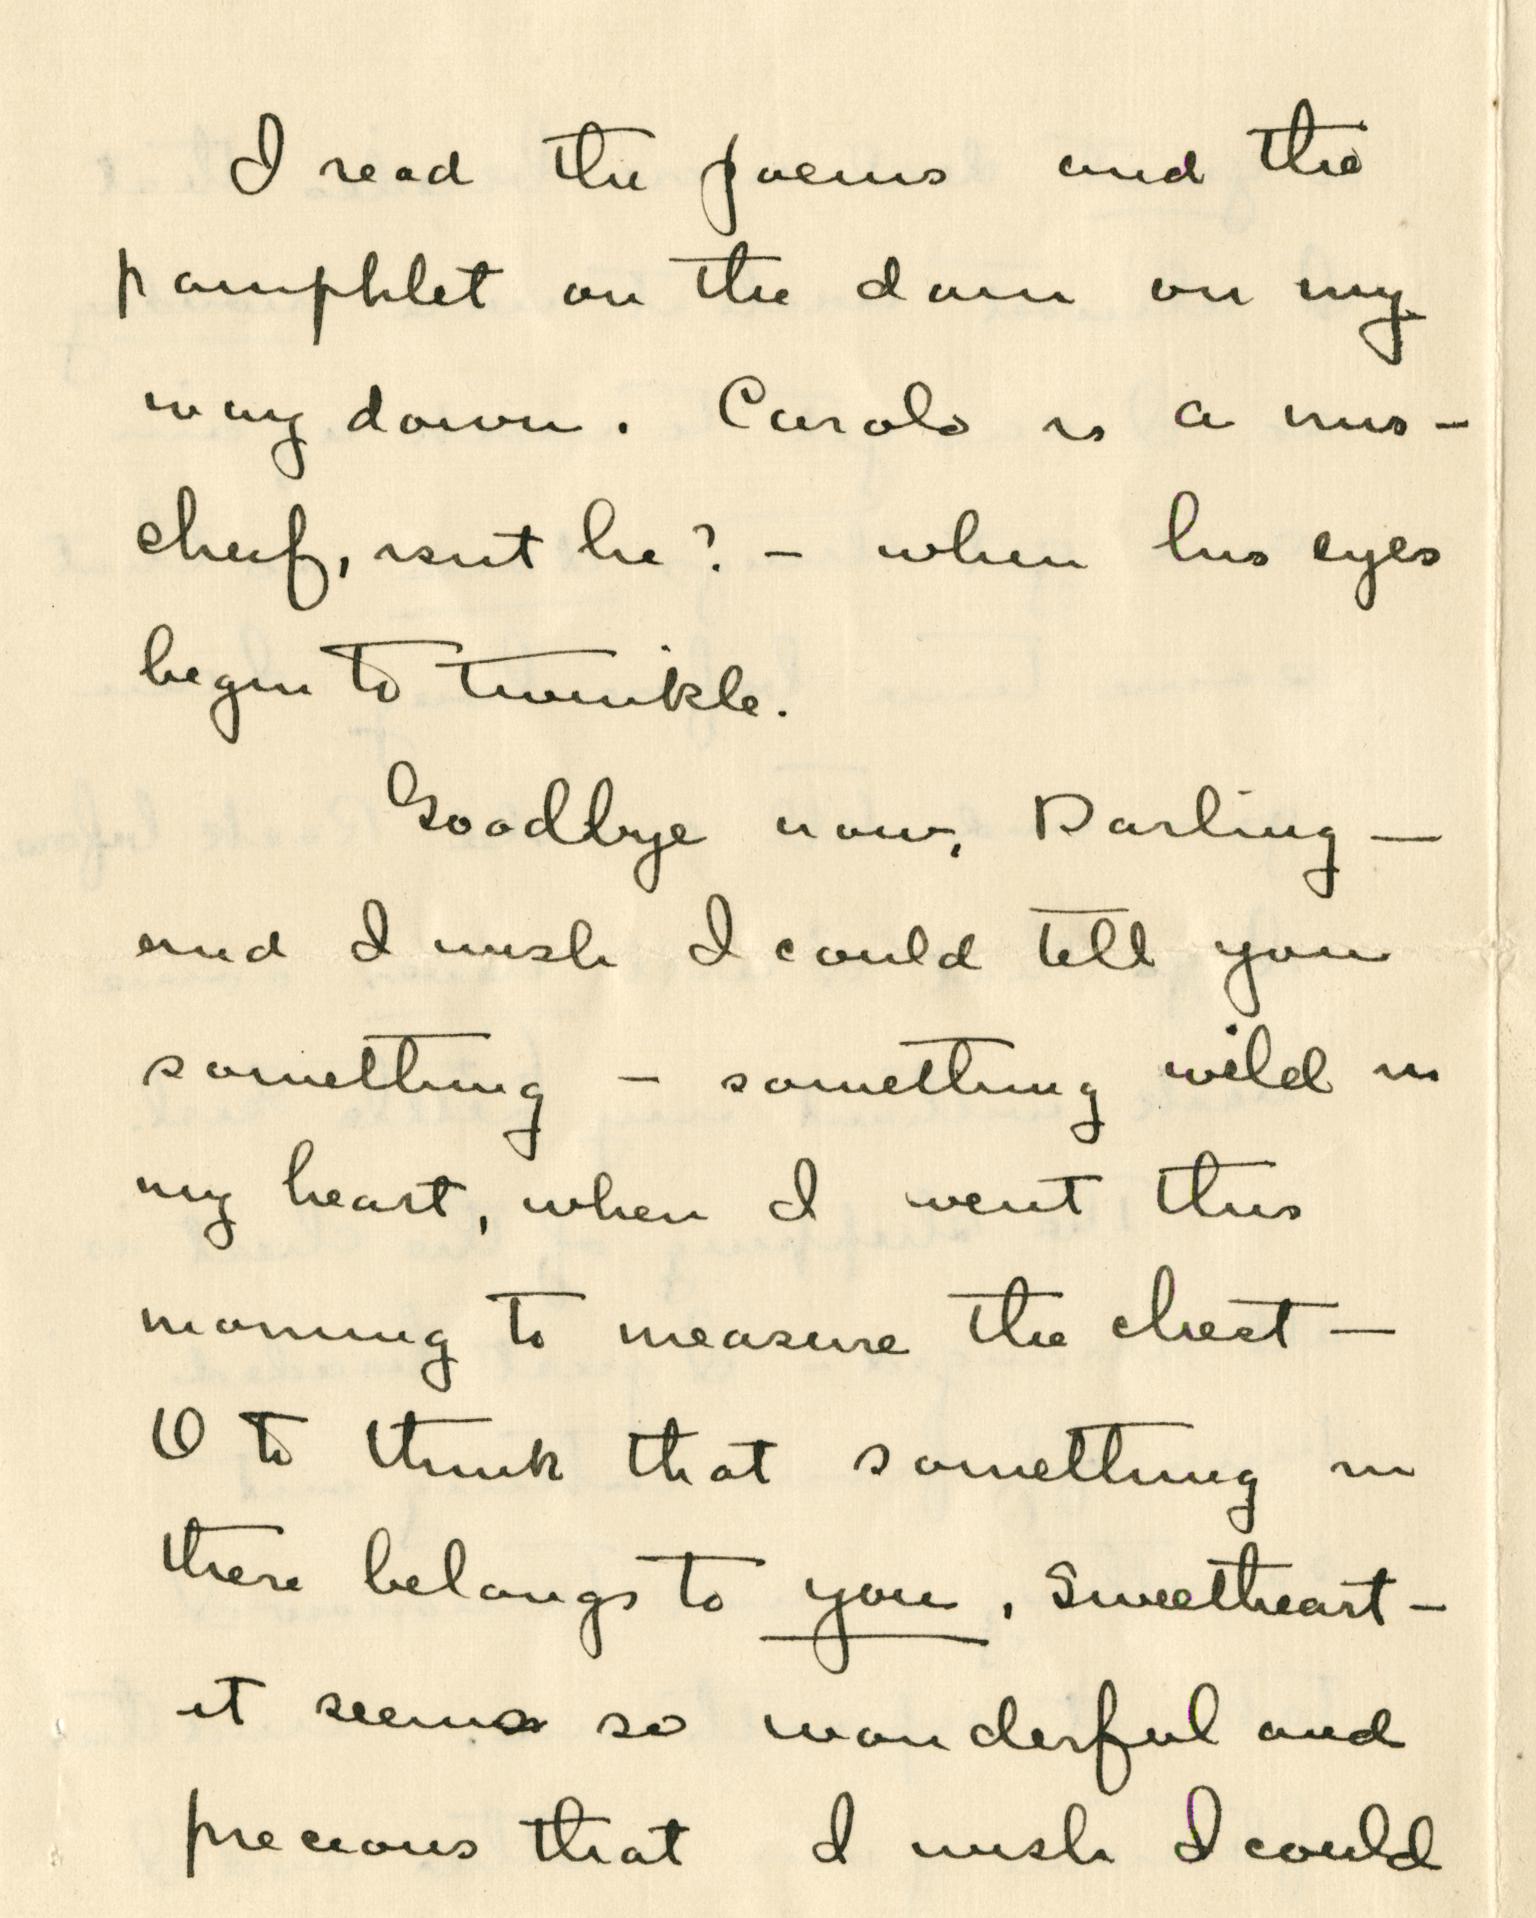 I read the poems and the
pamphlet on the dam on my
way down. Carols is a mis-
cheif, isnt he? – when his eyes
begin to twinkle.
Goodbye now, Darling —
and I wish I could tell you
something – something wild in
my heart, when I went this
morning to measure the chest —
O to think that something in
there belongs to you, Sweetheart –
it seems so wonderful and
precious that I wish I could